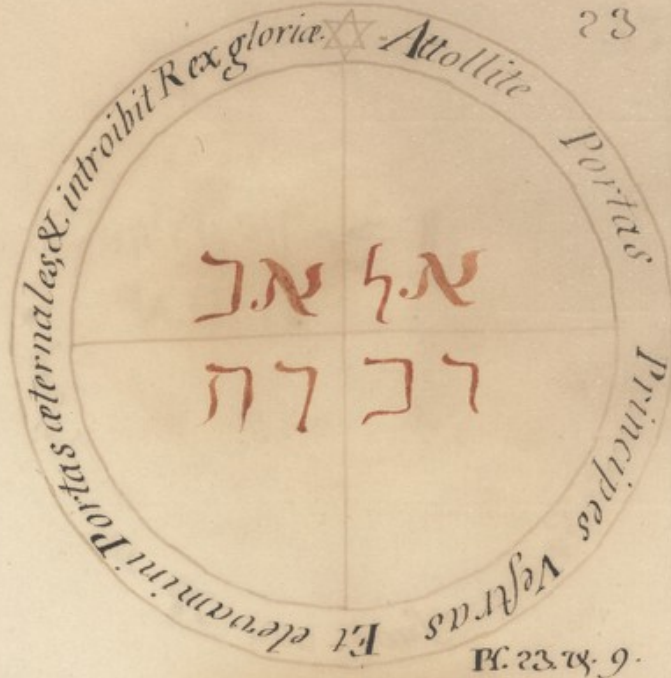 23
Attollite Portas Principes Vestras Et elevamini Portas æternales, & introibit Rex gloriæ.
א.ל א.כ
רכ רח
Ps. 23. ℣. 9.